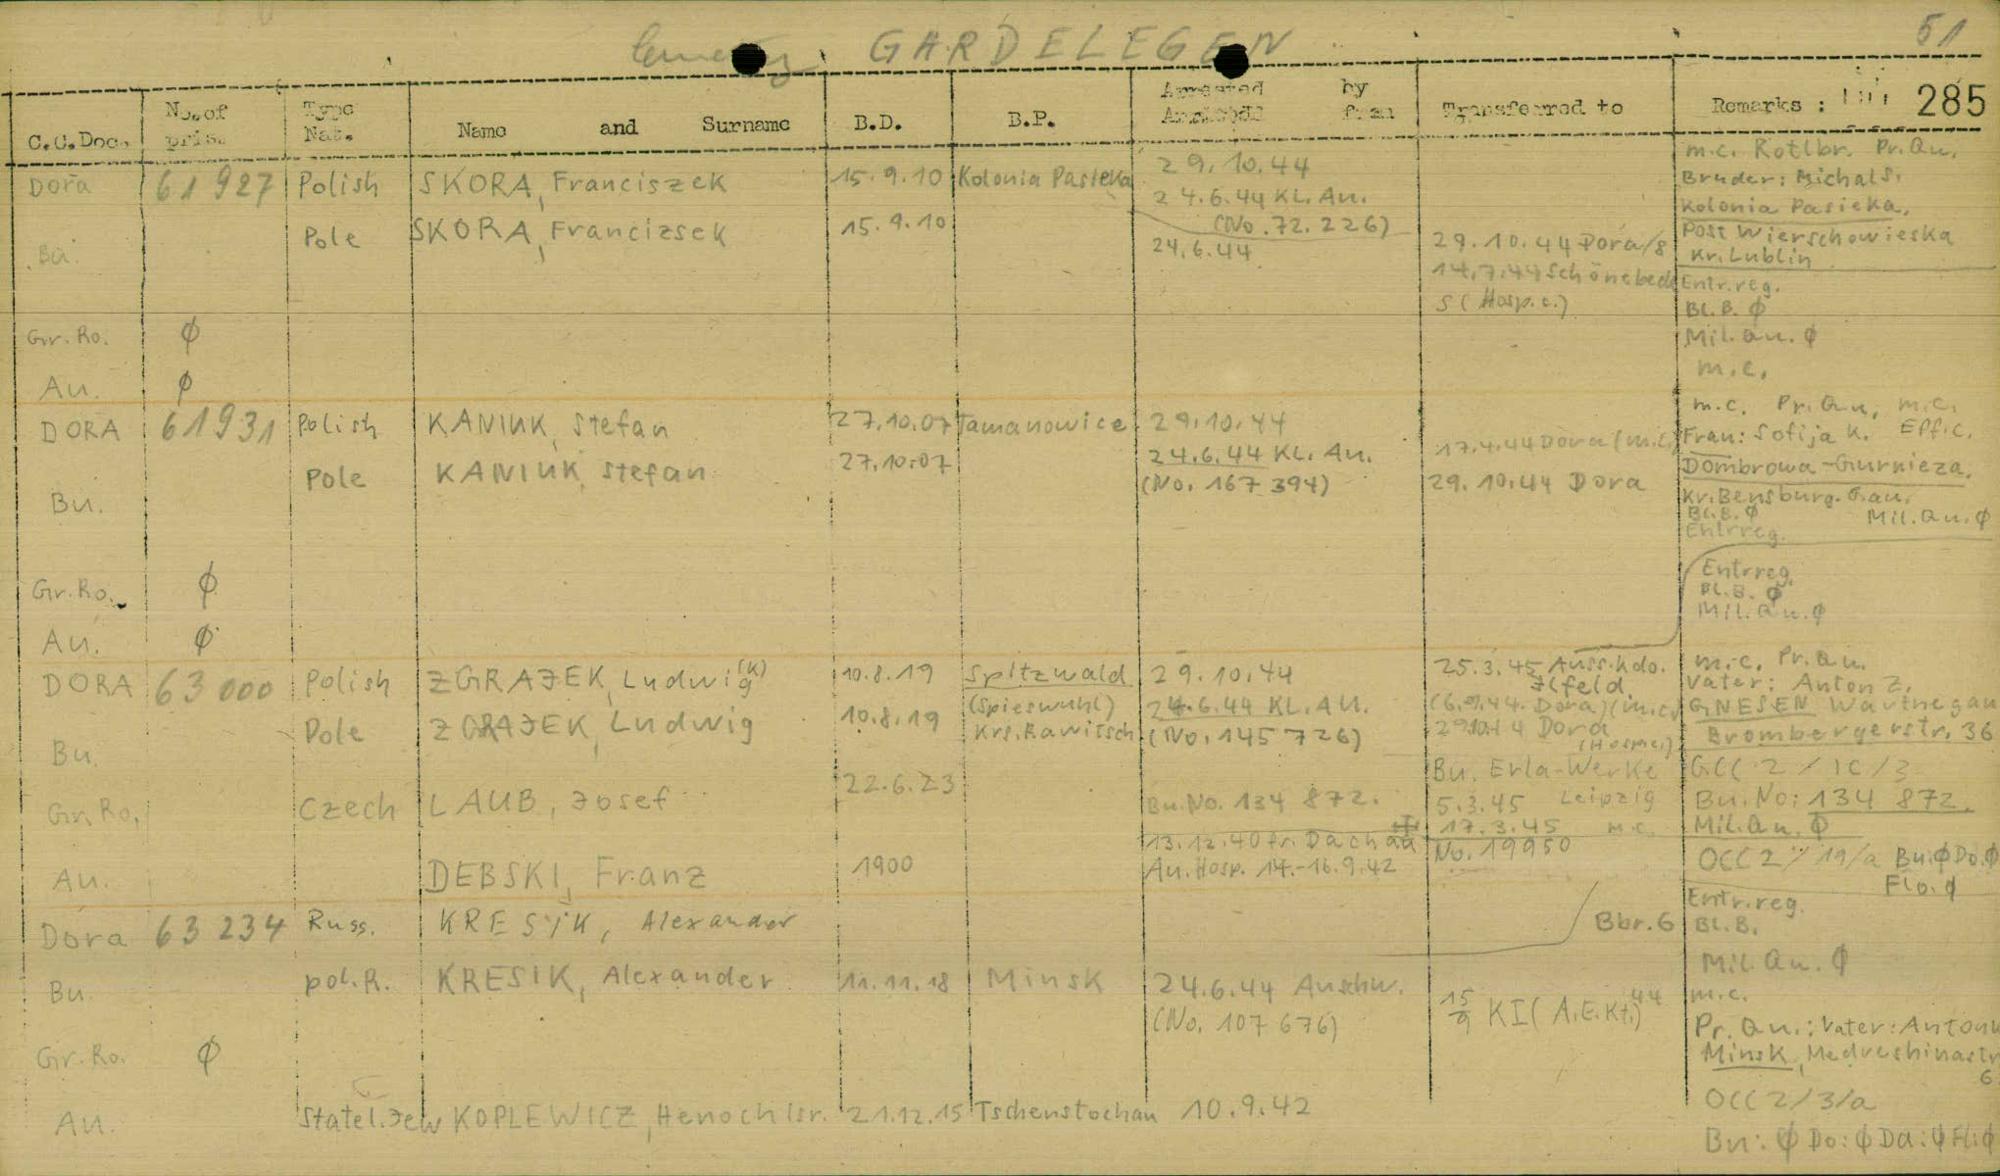 Cemetery GARDELEGEN 51
C.C.Doc. No. of pris. Type Nat. Name and Surname B.D. B.P. Arrested by from Transferred to Remarks : 285
m.c. Rotlbr. Pr.Qu.
Dora 61927 Polish SKORA, Franciszek 15.9.10 Kolonia Pasieka 29.10.44 Bruder: Michal S.
24.6.44 KL. Au. Kolonia Pasieka,
Bu. Pole SKORA, Francizsek 15.9.10 (No. 72.226) Post Wierschowieska
24.6.44 29.10.44 Dora/8 Kr. Lublin
14.7.44 Schönebeck Entr.reg.
S (Hosp.c.) Bl.B. Ø
Gr.Ro. Ø Mil.Qu. Ø
Au. Ø m.c.
DORA 61931 Polish KANIUK, Stefan 27.10.07 Tamanowice 29.10.44 m.c. Pr.Qu, m.c.
17.4.44 Dora (m.c.) Frau: Sofija K. Effic.
Pole KANIUK, Stefan 27.10.07 24.6.44 KL. Au. Dombrowa-Gurnieza,
Bu. (No. 167 394) 29.10.44 Dora Kr. Bensburg. Gau.
Bl.B. Ø Mil.Qu. Ø
Entrreg.
Gr.Ro. Ø Entrreg.
Bl.B. Ø
Au. Ø Mil.Qu. Ø
DORA 63000 Polish ZGRAJEK, Ludwig (K) 10.8.19 Spitzwald 29.10.44 25.3.45 Auss.kdo. m.c. Pr.Qu.
Ilfeld Vater: Anton Z.
Pole ZGRAJEK, Ludwig 10.8.19 (Spieswuhl) 24.6.44 KL. AU. (6.9.44. Dora) (m.c.) GNESEN Wartnegau
Bu. Krs. Rawitsch (No. 145 726) 29.10.44 Dora Brombergerstr. 36
Gr.Ro. Czech LAUB, Josef 22.6.23 Bu.No. 134 872. Bu. Erla-Werke GCC 2/1c/3
5.3.45 Leipzig Bu.No: 134 872.
17.3.45 m.c. Mil.Qu. Ø
Au. DEBSKI, Franz 1900 13.12.40 fr. Dachau No. 19950 OCC 2/19/a Bu:Ø Do.Ø
Au. Hosp. 14.-16.9.42 Flo.Ø
Dora 63234 Russ. KRESYK, Alexander Bbr.6 Entr.reg.
Bl.B.
Mil.Qu. Ø
Bu pol.R. KRESIK, Alexander 11.11.18 Minsk 24.6.44 Auschw. 15/9 KI (A.E.Kt.) 44 m.c.
(No. 107 676) Pr.Qu.: Vater: Antonu
Gr.Ro. Ø Minsk, Medveshinastr
6
Au. Statel. Jew KOPLEWICZ, Henoch Isr. 21.12.15 Tschenstochau 10.9.42 OCC 2/3/a
Bu: Ø Do: Ø Da: Ø Fl: Ø